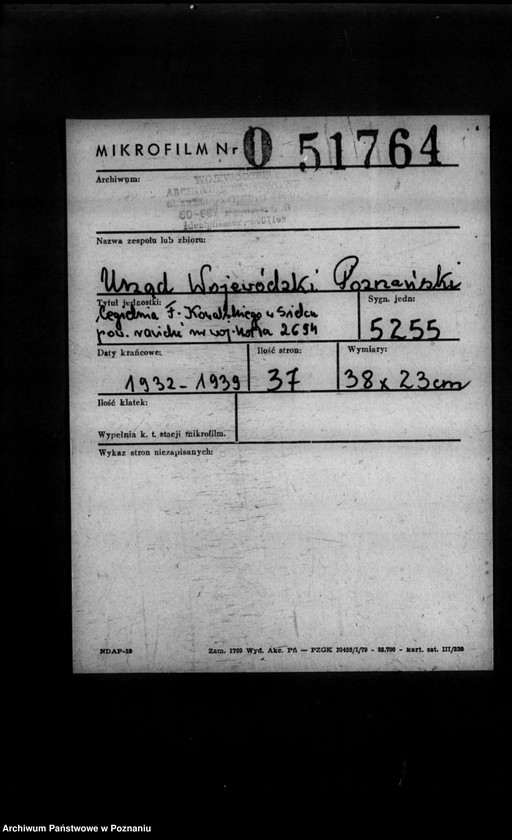 MIKROFILM Nr 0 51764
Archiwum:
WOJEWÓDZKIE
Nazwa zespołu lub zbioru:
Urząd Wojewódzki Poznański
Tytuł jednostki:
Cegielnia F. Kowalskiego w
pow. nr woj. 2694
Sygn. jedn:
5255
Daty krańcowe:
1932-1939
Ilość stron:
37
Wymiary:
38 x 23 cm
Ilość klatek:
Wypełnia k. t. stacji mikrofilm.
Wykaz stron niezapisanych:
NDAP-19
Zam. 1769 Wyd. Akc. Pń — PZGK 19455/1/79 - 85.700 - kart. sat. III/220
Archiwum Państwowe w Poznaniu